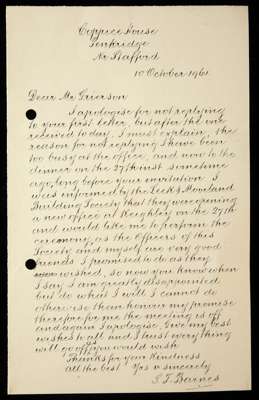 Coppice House
Penkridge
Nr Stafford
10 October 1961
Dear Mr Grierson
I apologise for not replying
to your first letter, but after the one
received to day, I must explain, the
reason for not replying I have been
too busy at the office, and now to the
dinner on the 27th inst sometime
ago, long before your invitation. I
was informed by the Leek & Moorland
Building Society that they were opening
a new office at Keighley on the 27th
and would like me to perform the
ceremony, as the Officers of this
Society and myself are very good
friends. I promised to do as they
wished, so now you know when
I say I am greatly disappointed
but do what I will I cannot do
otherwise than honour my promise
therefore for me the meeting is off
and again I apologise. Give my best
wishes to all and I trust everything
will go off as you would wish
Thanks for your kindness
all the best Yrs v sincerely
S. J. Barnes